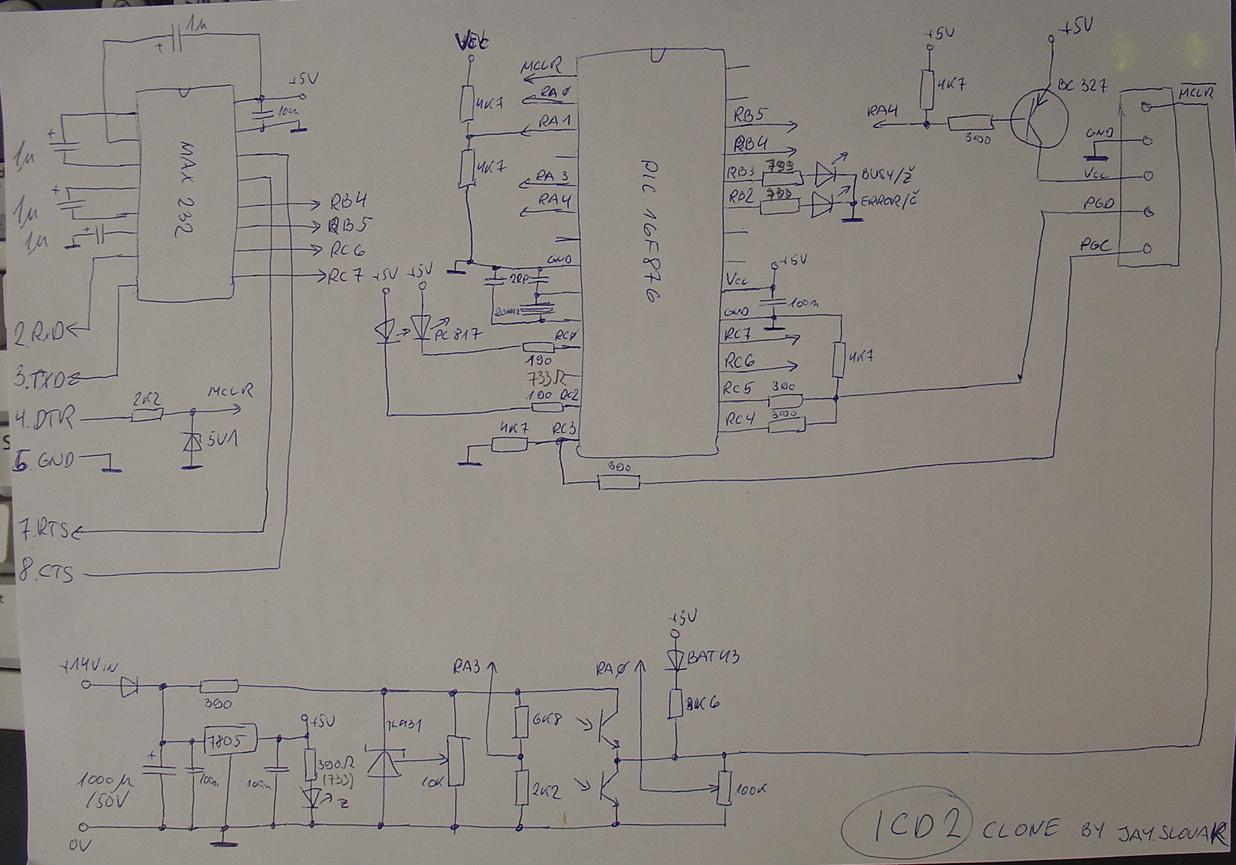 1µ
+
+5V
10n
+
1µ
MAX 232
+
1µ
+
1µ
RB4
RB5
RC6
RC7
2.RxD
3.TXD
4.DTR
2K2
MCLR
5V1
5. GND
7.RTS
8.CTS
Vcc
4K7
4K7
MCLR
RA0
RA1
RA3
RA4
GND
22p
20MHz
+5V
+5V
PC817
RC0
190
733Ω
100
RC2
4K7
RC3
390
PIC 16F876
RB5
RB4
RB3
RB2
BUSY/Ž
ERROR/Č
Vcc
+5V
100n
GND
RC7
RC6
4K7
RC5
390
RC4
+5V
+5V
4K7
BC 327
RA4
390
MCLR
GND
Vcc
PGD
PGC
+14V IN
390
7805
+5V
+
1000µ
/50V
100n
100n
390Ω
(733)
Z
TL431
10K
RA3
6K8
2K2
RA0
+5V
BAT43
100K
0V
ICD2 CLONE BY JAY.SLOVAK